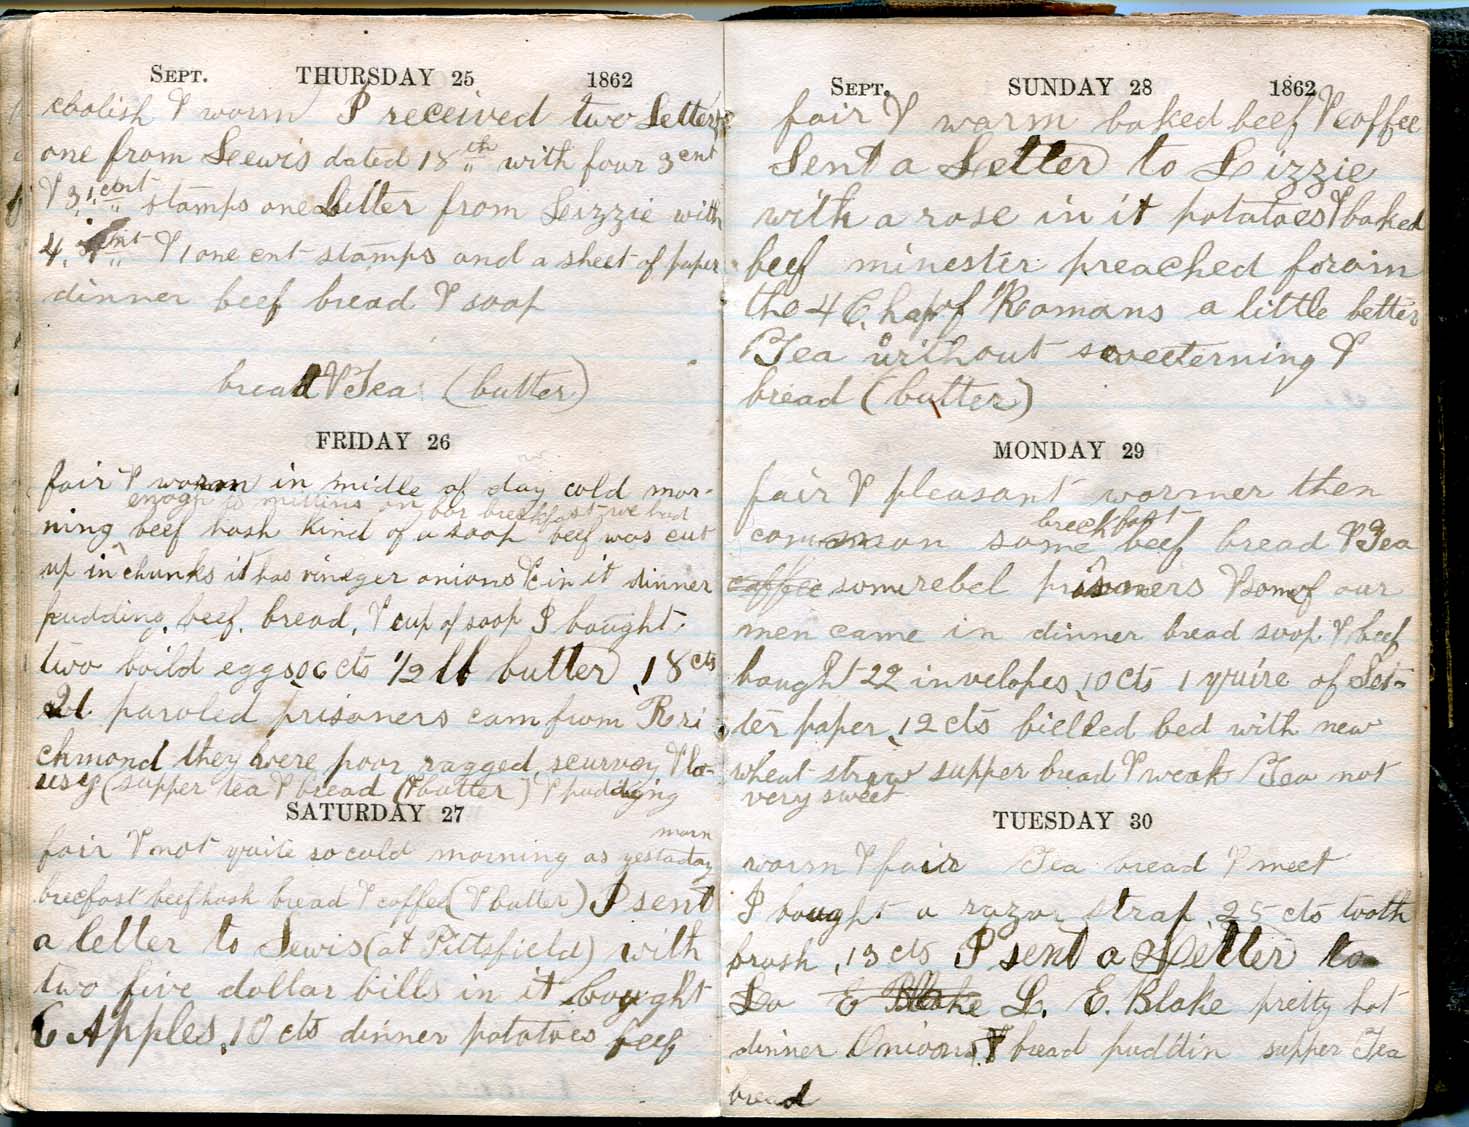 SEPT. THURSDAY 25 1862
coolish & warm I received two Letters
one from Leewis dated 18th with four 3 cent
& 3 1 cent stamps one Letter from Lizzie with
4, 3 cent & 1 one cent stamps and a sheet of paper
dinner beef bread & soop
bread & Tea (butter)
FRIDAY 26
fair & warm in midle of day cold mor-
ning beef hash kind of a soop beef was cut
enogh to on for breckfast we had
up in chunks it has vineger onions &c in it dinner
pudding, beef, bread, & cup of soop I bought
two boild eggs, 06 cts 1/2 lb butter, 18 cts
21 paroled prisoners cam from Rri
chmond they were poor ragged, scurvey & lo-
usey (supper tea & bread (& butter) & pudding
SATURDAY 27
fair & not quite so cold morning as yestaday
morn
brecfast beef hash bread & coffee (& butter) I sent
a letter to Lewis (at Pittsfield) with
two five dollar bills in it bought
6 Apples, 10 cts dinner potatoes beef
SEPT. SUNDAY 28 1862
fair & warm baked beef & coffee
Sent a Letter to Lizzie
with a rose in it potatoes & baked
beef minester preached from
the 4 Chap of Romans a little better
Tea without sweeterning &
bread (butter)
MONDAY 29
fair & pleasant warmer then
common some beef bread & Tea
breckfast
coffee som rebel prisoners & som of our
men came in dinner bread soop & beef
bought 22 invelopes, 10 cts 1 quire of Let-
ter paper, 12 cts billed bed with new
wheat straw supper bread & weak Tea not
very sweet
TUESDAY 30
warm & fair Tea bread & meet
I bought a razor strap, 25 cts tooth
brush, 13 cts I sent a Letter to
Lo E Blake L. E. Blake pretty hot
dinner Onions, & bread puddin supper Tea
bread